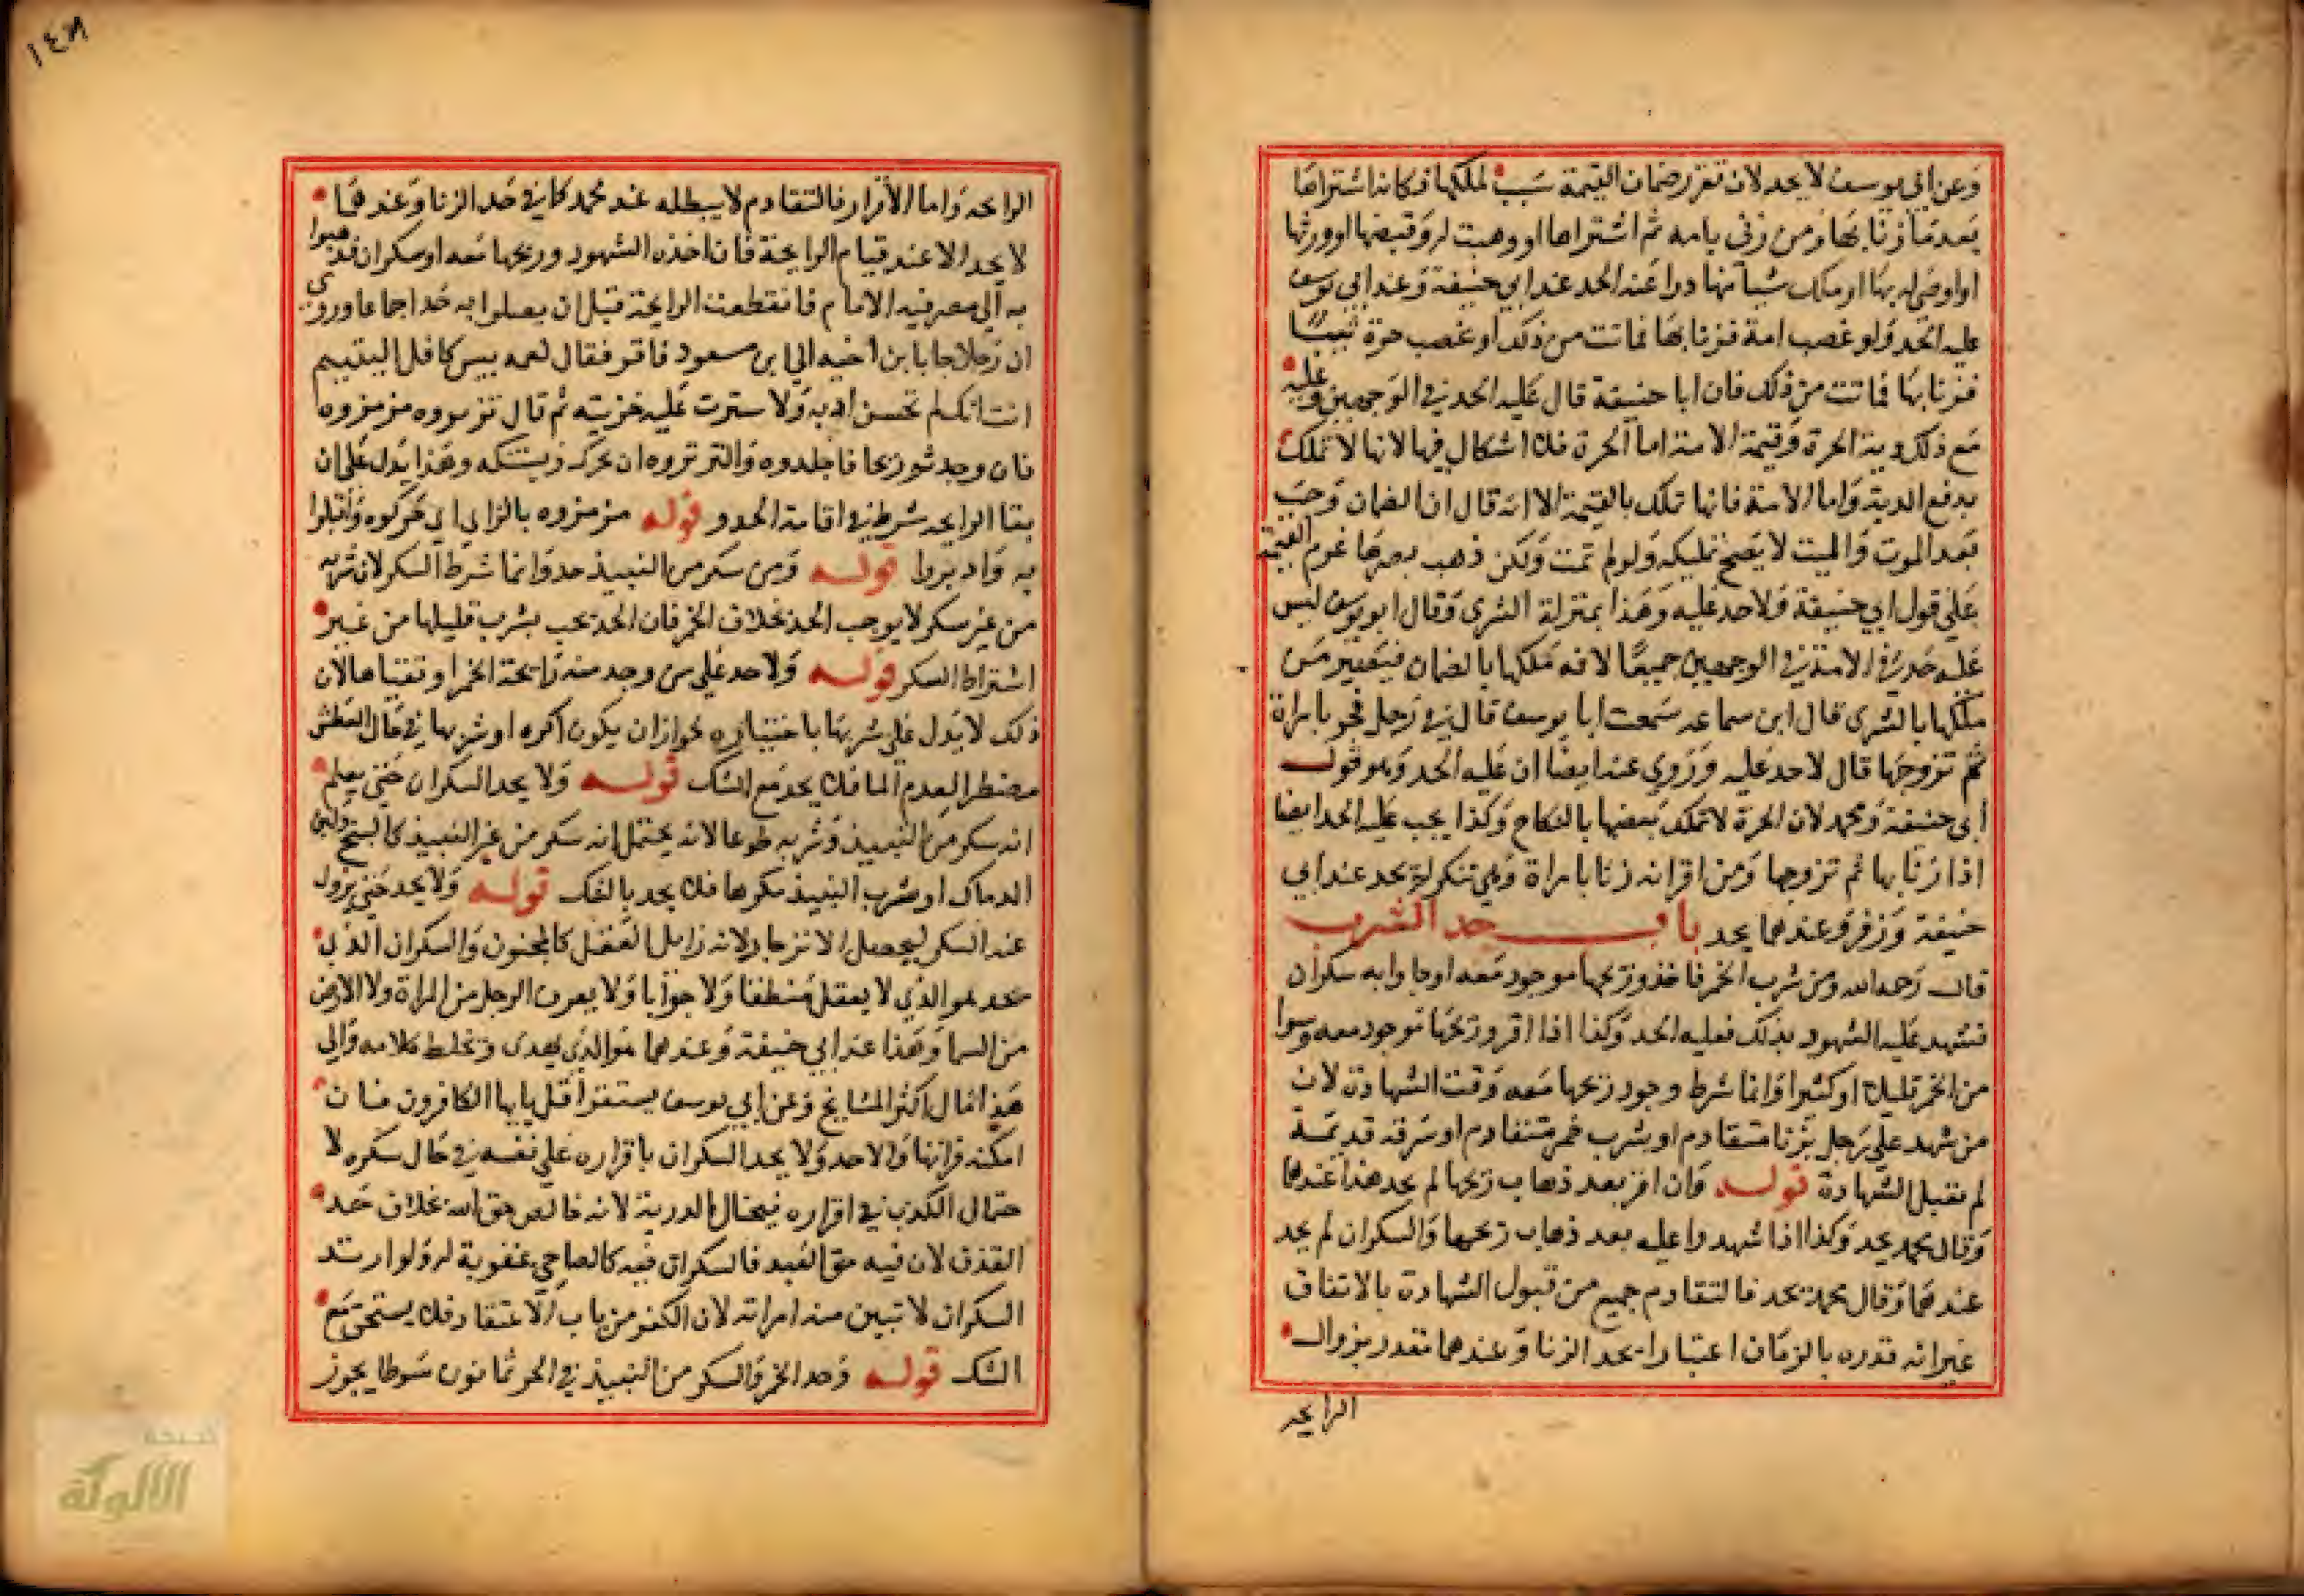 وعن ابي يوسف لا يحد لان تقرر ضمان القيمة سبب لملكها فكانه اشتراها
بعد ما زنا بها ومن زنى بامه ثم اشتراها او وهبت له وقبضها او ورثها
او اوصى له بها او ملك شيا منها درا عنه الحد عند ابي حنيفة وعند ابي يوسف
عليه الحد ولو غصب امة فزنا بها فماتت من ذلك او غصب حرة ثيبا
فزنا بها فماتت من ذلك فان ابا حنيفة قال عليه الحد في الوجهين وعليه
مع ذلك دية الحرة وقيمة الامة اما الحرة فلا اشكال فيها لانها لا تملك
بدفع الدية واما الامة فانها تملك بالقيمة الا انه قال ان الضمان وجب
بعد الموت والميت لا يصح تمليكه ولو لم تمت ولكن ذهب بصرها غرم القيمة
على قول ابي حنيفة فلا حد عليه وهذا بمنزلة الشرى وقال ابو يوسف ليس
عليه حد في الامة في الوجهين جميعا لانه ملكها بالضمان فيصير كمن
ملكها بالشرى قال ابن سماعه سمعت ابا يوسف قال في رجل فجر بامراة
ثم تزوجها قال لا حد عليه وروي عنه ايضا ان عليه الحد وهو قول
ابي حنيفة ومحمد لان الحرة لا تملك بعضها بالنكاح وكذا يجب عليه الحد ايضا
اذا زنا بها ثم تزوجها ومن اقر انه زنا بامراة وهي تنكر لم يحد عند ابي
حنيفة وزفر وعندهما يحد باب حد الشرب
قال رحمه الله ومن شرب الخمر فاخذ وريحها موجود معه او جاوا به سكران
فشهد عليه الشهود بذلك فعليه الحد وكذا اذا اقر وريحها موجود معه وسوا
من الخمر قليلا او كثيرا وانما شرط وجود ريحها معه وقت الشهادة لان
من شهد على رجل بزنا متقادم او بشرب خمر متقادم او سرقه قديمة
لم تقبل الشهادة قوله وان اقر بعد ذهاب ريحها لم يحد هذا عندهما
وقال محمد يحد وكذا اذا شهدوا عليه بعد ذهاب ريحها والسكران لم يحد
عندهما وقال محمد يحد فالتقادم جميع من قبول الشهادة بالاتفاق
غير انه قدره بالزمان اعتبارا بحد الزنا وعندهما مقدر بزوال
الرايحه
١٤٨
الرايحه واما الاقرار فالتقادم لا يبطله عند محمد كما في حد الزنا وعندهما
لا يحد الا عند قيام الرايحة فان اخذه الشهود وريحها معه او سكران فذهبوا
به الى مصر فيه الامام فانقطعت الرايحة قبل ان يصلوا به حد اجماعا وروي
ان رجلا جا بابن اخيه الى ابن مسعود فاقر فقال لعمه بيس كافل اليتيم
انت انك لم تحسن ادبه ولا سترت عليه خزيته ثم قال تزتروه مزمزوه
فان وجدتم ريحا فاجلدوه والترترة ان يحرك ويستنكه وهذا يدل على ان
بقا الرايحه شرط في اقامة الحدود قوله مزمزوه بالزاي اي حركوه واقبلوا
به وادبروا قوله ومن سكر من النبيذ حد وانما شرط السكر لان شربه
من غير سكر لا يوجب الحد بخلاف الخمر فان الحد يجب بشرب قليلها من غير
اشتراط السكر قوله ولا حد على من وجد منه رايحة الخمر او تقياها لان
ذلك لا يدل على شربها باختياره لجواز ان يكون اكره او شربها في حال العطش
مضطرا لعدم الما فلا يحد مع الشك قوله ولا يحد السكران حتى يعلم
انه سكر من النبيذ وشربه طوعا لانه يحتمل انه سكر من غير النبيذ كالبنج ولبن
الرماك او شرب النبيذ مكرها فلا يحد بالشك قوله ولا يحد حتى يزول
عنه السكر ليحصل الانزجار ولانه زايل العقل كالمجنون والسكران الذي
يحد هو الذي لا يعقل منطقا ولا جوابا ولا يعرف الرجل من المراة ولا الارض
من السما وهذا عند ابي حنيفة وعندهما هو الذي يهدى ويختلط كلامه والى
هذا مال اكثر المشايخ وعن ابي يوسف يستقرا قل يايها الكافرون فان
امكنه قراتها والا حد ولا يحد السكران باقراره على نفسه في حال سكره لا
حتمال الكذب في اقراره فيحتال لدريه لانه خالص حق الله بخلاف حد
القذف لان فيه حق العبد فالسكران فيه كالصاحي عقوبة له ولو ارتد
السكران لا تبين منه امراته لان الكفر من باب الاعتقاد فلا يستحق مع
الشك قوله وحد الخمر والسكر من النبيذ في الحر ثمانون سوطا يجوز
الألوكة